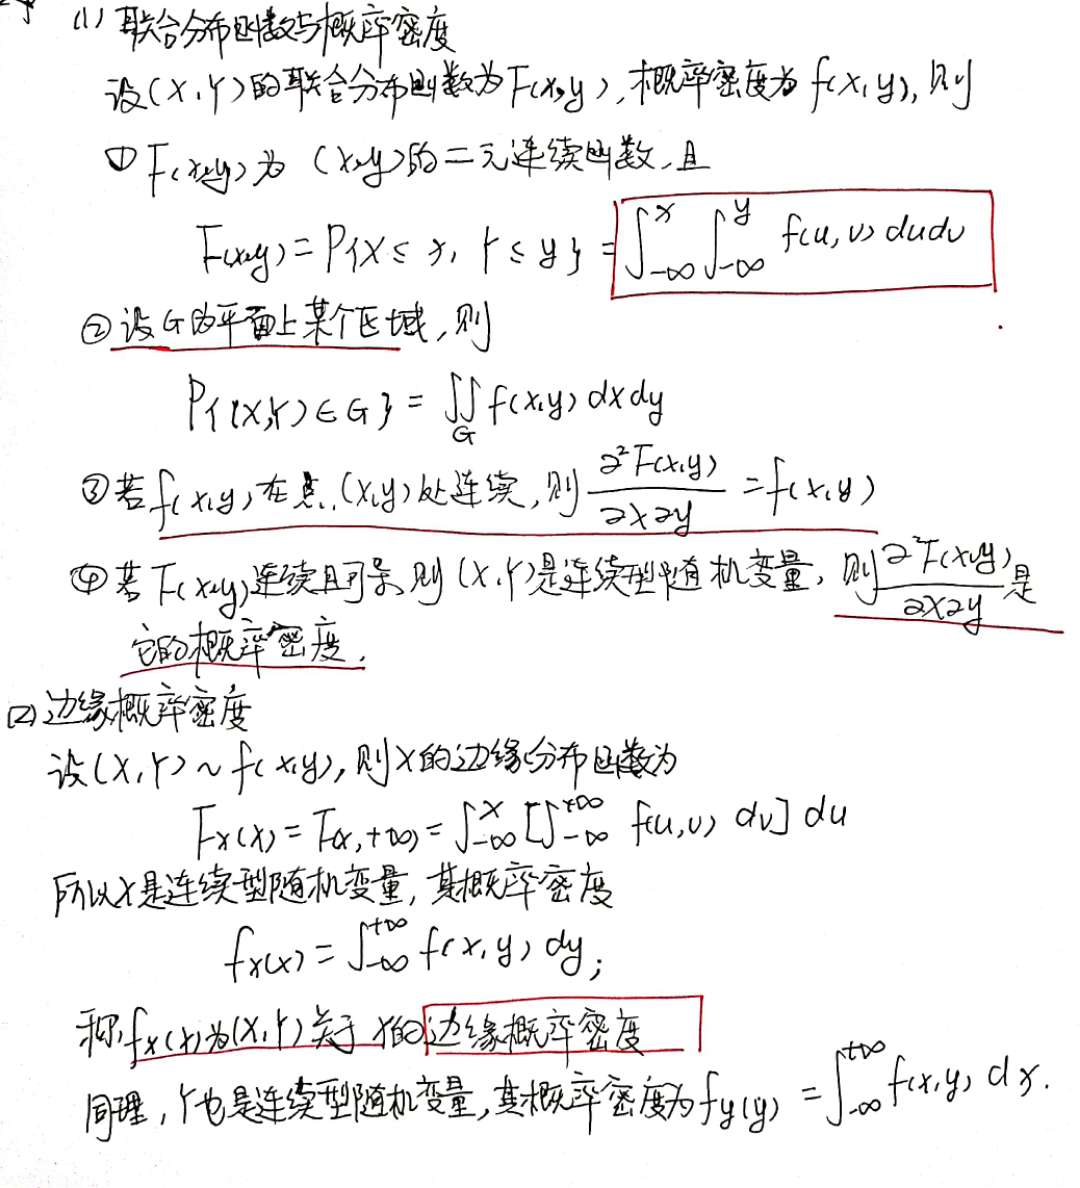 (1) 联合分布函数与概率密度
设(X,Y)的联合分布函数为F(x,y),概率密度为f(x,y),则
① F(x,y)为(x,y)的二元连续函数,且
F(x,y)=P{X≤x, Y≤y}=∫_{-∞}^{x}∫_{-∞}^{y} f(u,v)dudv
②设G为平面上某个区域,则
P{(X,Y)∈G}=∬_G f(x,y)dxdy
③若f(x,y)在点(x,y)处连续,则 ∂²F(x,y)/∂x∂y =f(x,y)
④若F(x,y)连续且可导则(X,Y)是连续型随机变量,则 ∂²F(x,y)/∂x∂y 是
它的概率密度.
(2)边缘概率密度
设(X,Y)~f(x,y),则X的边缘分布函数为
F_X(x)=F(x,+∞)=∫_{-∞}^{x}[∫_{-∞}^{+∞} f(u,v) dv]du
所以X是连续型随机变量,其概率密度
f_X(x)=∫_{-∞}^{+∞} f(x,y)dy;
称f_X(x)为(X,Y)关于X的边缘概率密度
同理,Y也是连续型随机变量,其概率密度为f_y(y)=∫_{-∞}^{+∞} f(x,y)dx.